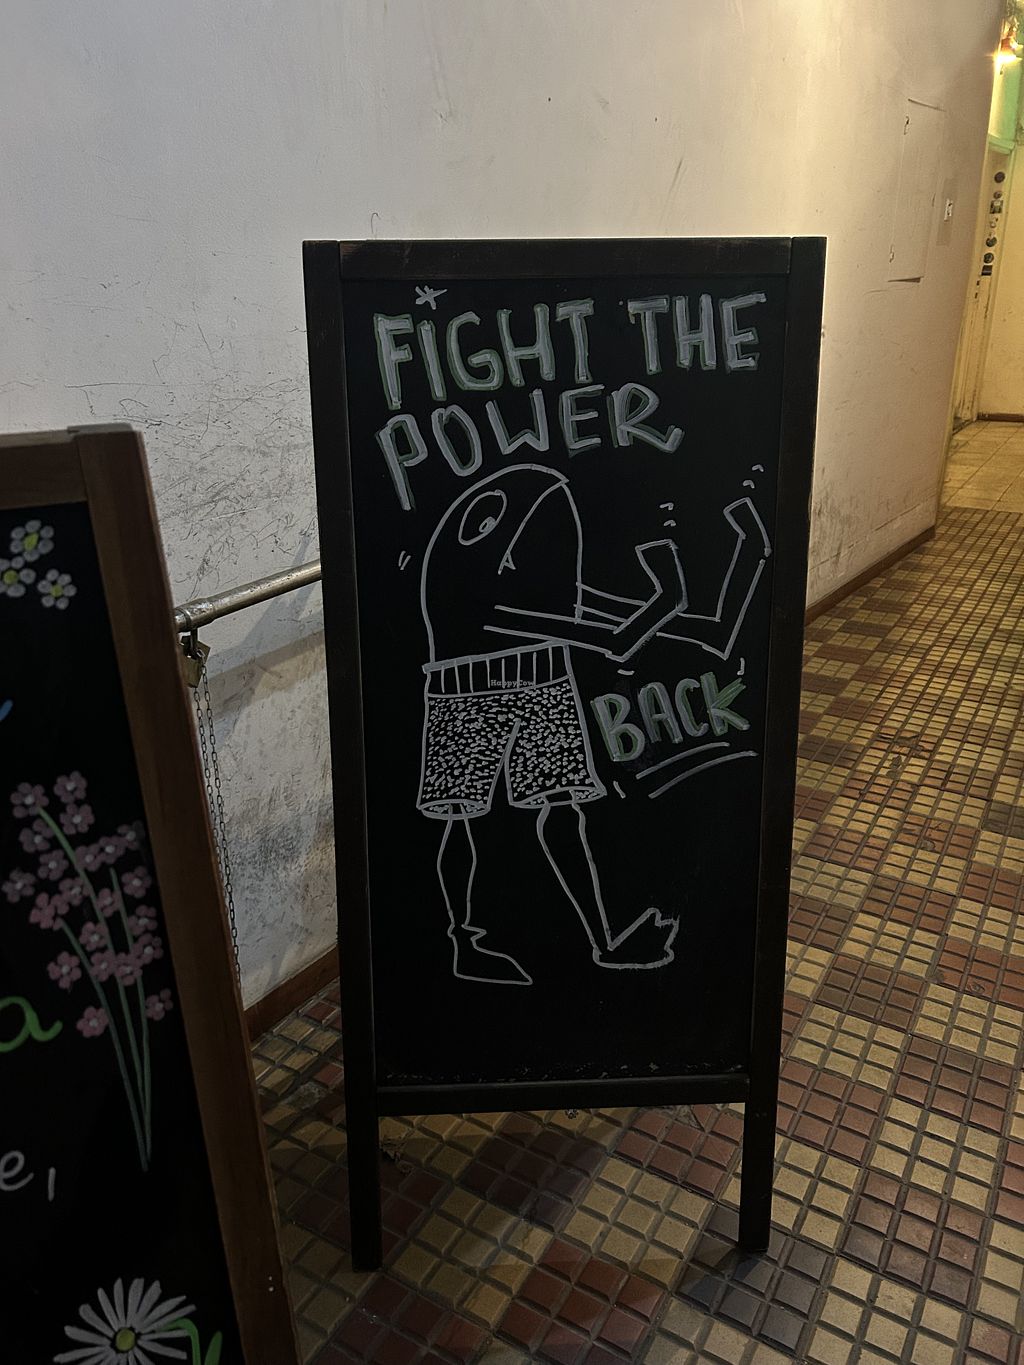 FIGHT THE
POWER
BACK
HappyCow
a
e,